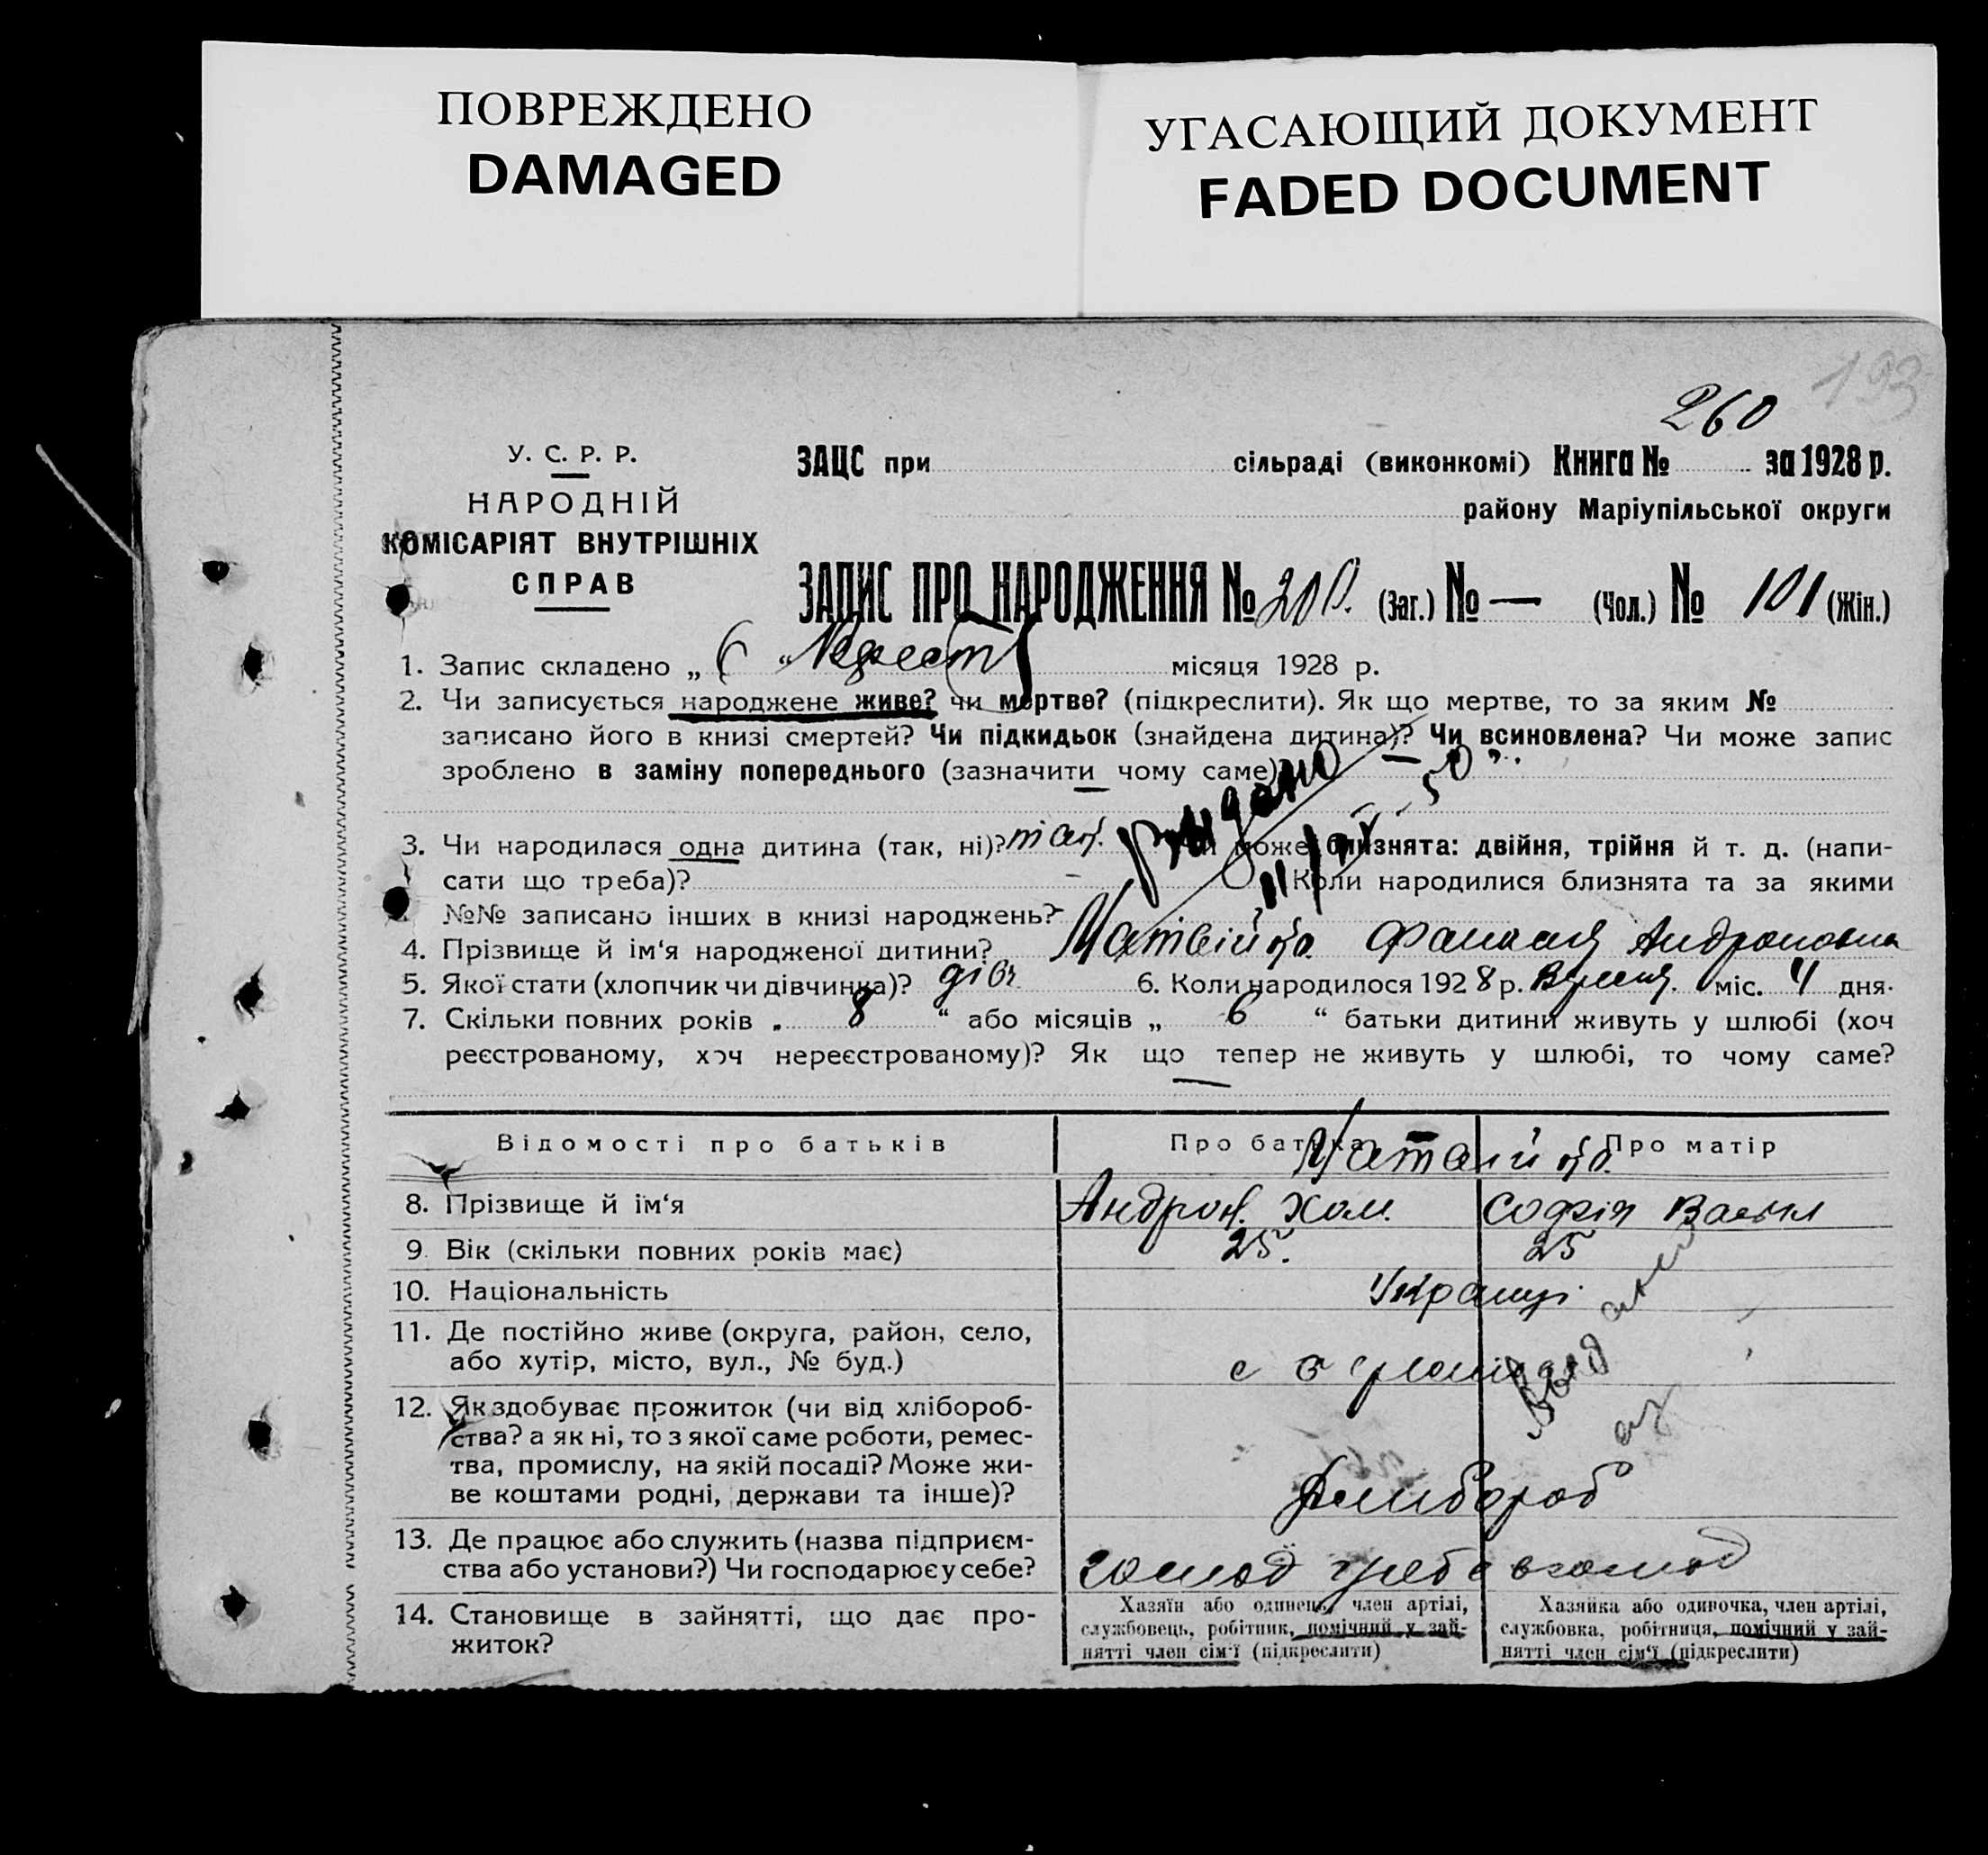 ПОВРЕЖДЕНО
DAMAGED
УГАСАЮЩИЙ ДОКУМЕНТ
FADED DOCUMENT
193
260
У. С. Р. Р.
НАРОДНІЙ
КОМІСАРІЯТ ВНУТРІШНІХ
СПРАВ
ЗАЦС при сільраді (виконкомі) Книга № за 1928 р.
району Маріупільської округи
ЗАПИС ПРО НАРОДЖЕННЯ № 210. (Заг.) № — (Чол.) № 101 (Жін.)
1. Запис складено „ 6 “ місяця 1928 р.
2. Чи записується народжене живе? чи мертве? (підкреслити). Як що мертве, то за яким №
записано його в книзі смертей? Чи підкидьок (знайдена дитина)? Чи всиновлена? Чи може запис
зроблено в заміну попереднього (зазначити чому саме)
3. Чи народилася одна дитина (так, ні)? так. може близнята: двійня, трійня й т. д. (напи-
сати що треба)? Коли народилися близнята та за якими
№№ записано інших в книзі народжень?
4. Прізвище й ім‘я народженої дитини? Андроновна
5. Якої стати (хлопчик чи дівчинка)? дівч 6. Коли народилося 1928 р. Вересня. міс. 4 дня.
7. Скільки повних років „ 8 “ або місяців „ 6 “ батьки дитини живуть у шлюбі (хоч
реєстрованому, хоч нереєстрованому)? Як що тепер не живуть у шлюбі, то чому саме?
Відомості про батьків Про батька Про матір
8. Прізвище й ім‘я Андрон. Хом. Софія Васил
9. Вік (скільки повних років має) 25. 25
10. Національність Україн
11. Де постійно живе (округа, район, село,
або хутір, місто, вул., № буд.)
12. Як здобуває прожиток (чи від хлібороб-
ства? а як ні, то з якої саме роботи, ремес-
тва, промислу, на якій посаді? Може жи-
ве коштами родні, держави та інше)? Хлибороб
13. Де працює або служить (назва підприєм-
ства або установи?) Чи господарює у себе?
14. Становище в зайнятті, що дає про-
житок?
Хазяїн або одинець, член артілі,
службовець, робітник, помічний у зай-
нятті член сім‘ї (підкреслити)
Хазяйка або одиночка, член артілі,
службовка, робітниця, помічний у зай-
нятті член сім‘ї (підкреслити)